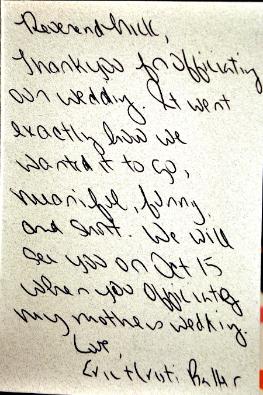 Reverend Nick,
Thankyou for Officiating
our wedding. It went
exactly how we
wanted it to go,
meaniful, funny,
and short. We will
see you on Oct 15
when you officiate
my mothers wedding.
Love,
Eric + Kristi